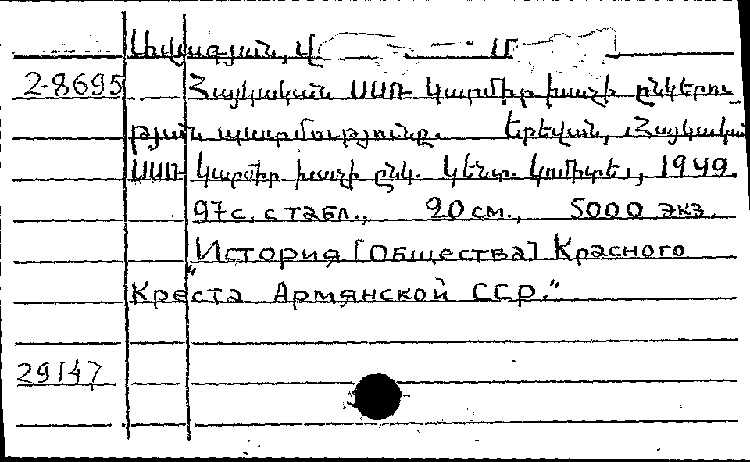 Ավագյան, Վ. Մ.
2-8695 Հայկական ՍՍՌ Կարմիր խաչի ընկերու-
թյան պատմությունը. Երեվան, Հայկական
ՍՍՌ Կարմիր խաչի ընկ. Կենտ. կոմիտե, 1949.
97 с. с табл., 20 см., 5000 экз.
"История [Общества] Красного
Креста Армянской ССР."
29147